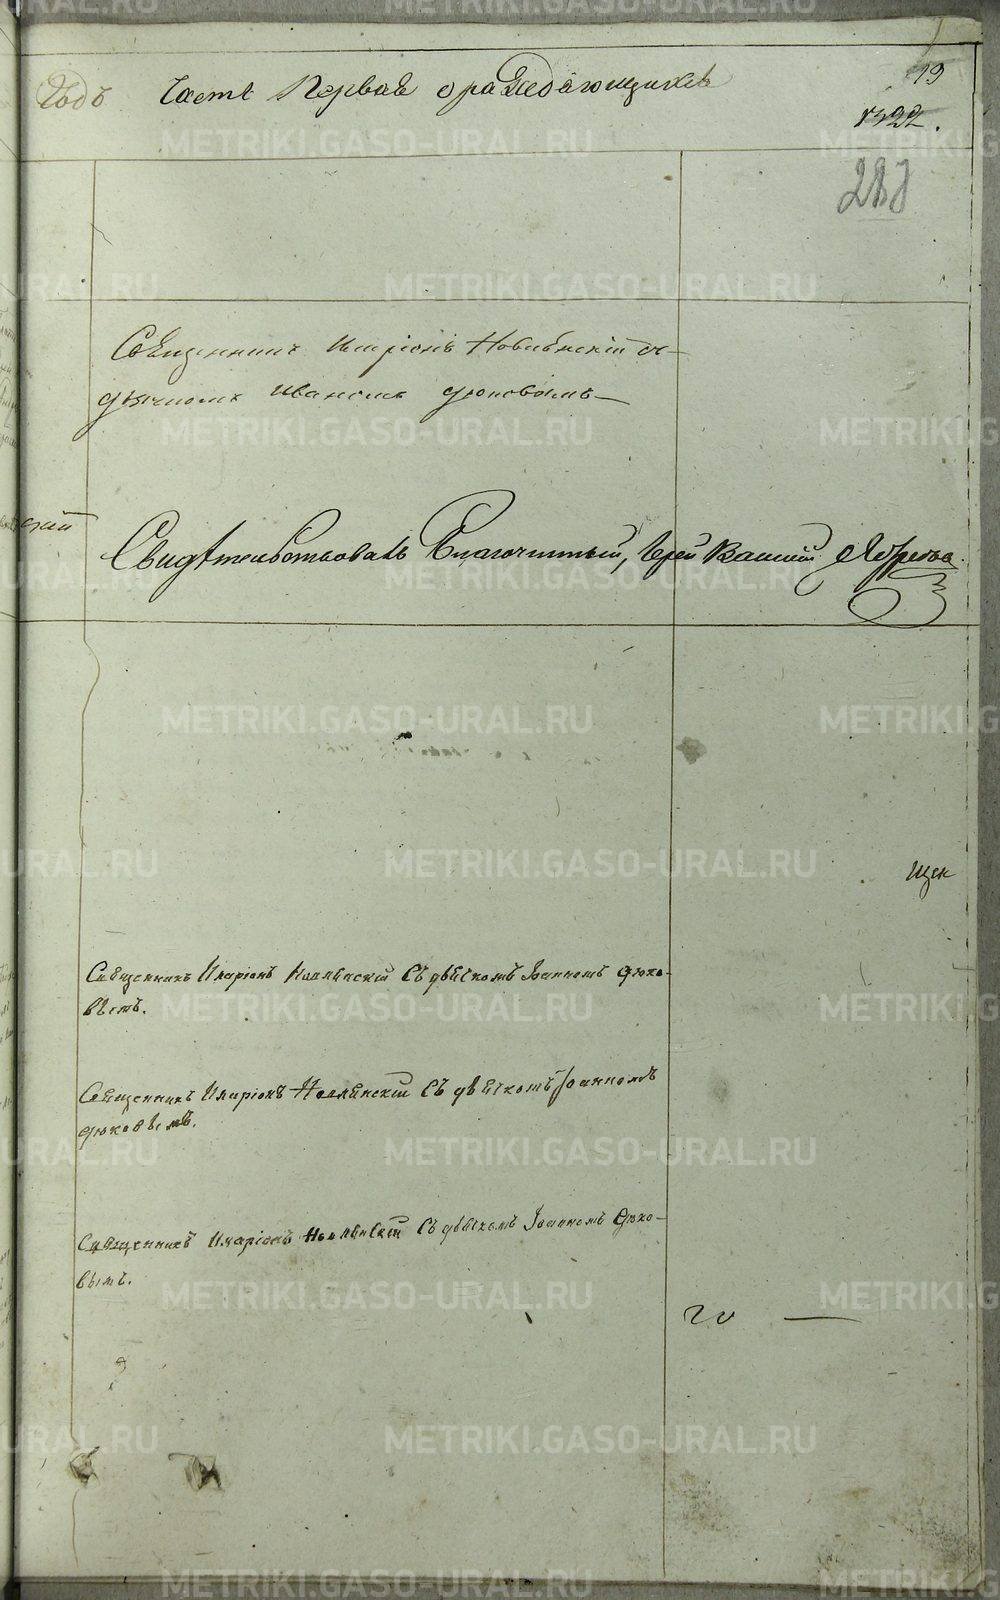 19
Годъ Часть Первая о раждающихся
1322.
283
Священникъ Иларіонъ Новлянскій съ
дьячкомъ Иваномъ Дюковымъ—
скій
Свидѣтельствовалъ Благочинный, Іерей Василій
щен
Священникъ Иларіонъ Новлянскій съ дьячкомъ Іоанномъ Дюко-
вымъ.
Священникъ Иларіонъ Новлянскій съ дьячкомъ Іоанномъ
Дюковымъ.
Священникъ Иларіонъ Новлянскій съ дьячкомъ Іоанномъ Дюко-
вымъ.
METRIKI.GASO-URAL.RU